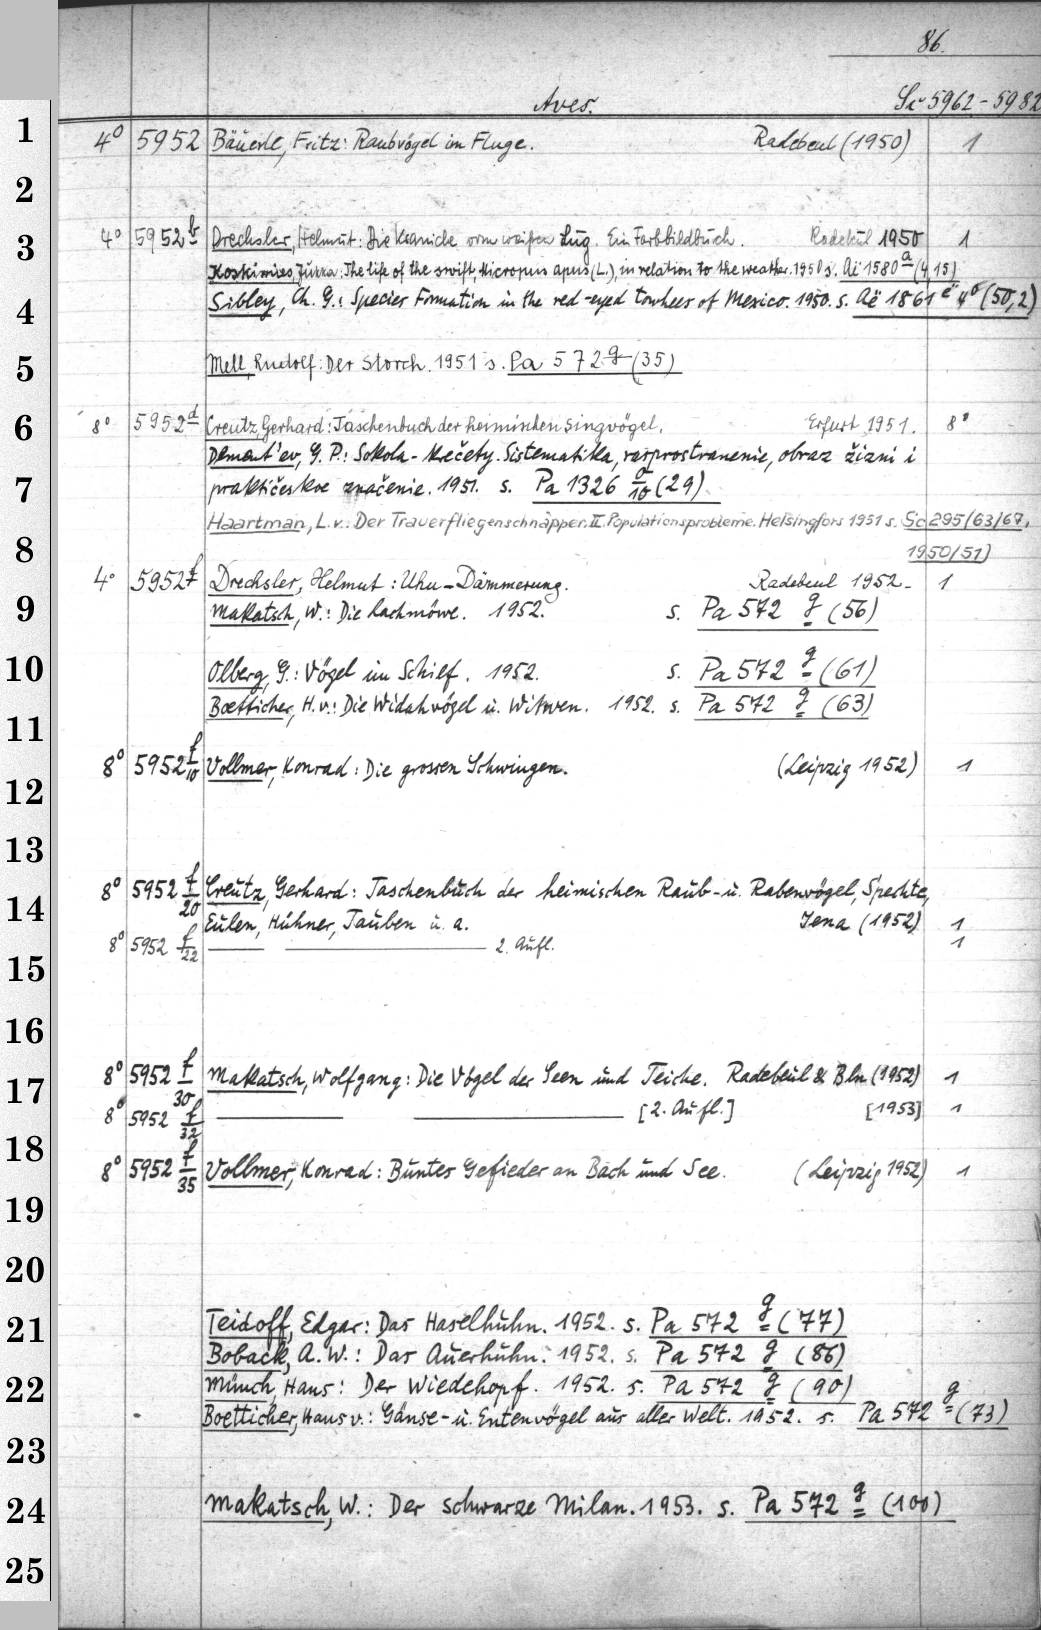 86.
Aves.
5962-5982
1
4° 5952 Bäuerle, Fritz: Raubvögel im Fluge. Radebeul (1950) 1
2
3
4° 5952 b Drechsler, Helmut: Die Kraniche vom weißen Lug. Ein Farbbildbuch. Radebeul 1950 1
Koskimies, Jukka: The life of the swift, Micropus apus (L.), in relation to the weather. 1950 s. Aï 1580 a (4,15)
4
Sibley, Ch. G.: Species Formation in the red-eyed towhees of Mexico. 1950. s. Aë 1861 e 4° (50,2)
5
Mell, Rudolf: Der Storch. 1951 s. Pa 572 g (35)
6
8° 5952 d Creutz, Gerhard: Taschenbuch der heimischen Singvögel. Erfurt 1951. 8°
Dement'ev, G. P.: Sokola-Krečety. Sistematika, rasprostranenie, obraz žizni i
7
praktičeskoe značenie. 1951. s. Pa 1326 a/10 (29)
Haartman, L. v.: Der Trauerfliegenschnäpper. II. Populationsprobleme. Helsingfors 1951 s. Sc 295/63/67,
8
1950/51)
4° 5952 f Drechsler, Helmut: Uhu-Dämmerung. Radebeul 1952- 1
9
Makatsch, W.: Die Lachmöwe. 1952. s. Pa 572 g (56)
10
Olberg, G.: Vögel im Schilf. 1952. s. Pa 572 g (61)
Boetticher, H. v.: Die Widahvögel u. Witwen. 1952. s. Pa 572 g (63)
11
8° 5952 f/10 Vollmer, Konrad: Die grossen Schwingen. (Leipzig 1952) 1
12
13
8° 5952 f/20 Creutz, Gerhard: Taschenbuch der heimischen Raub- u. Rabenvögel, Spechte,
14
Eulen, Hühner, Tauben u. a. Jena (1952) 1
8° 5952 f/22 —— —— 2. Aufl. 1
15
16
8° 5952 f/30 Makatsch, Wolfgang: Die Vögel der Seen und Teiche. Radebeul & Bln (1952) 1
17
8° 5952 f/32 —— —— [2. Aufl.] [1953] 1
18
8° 5952 f/35 Vollmer, Konrad: Buntes Gefieder an Bach und See. (Leipzig 1952) 1
19
20
21
Teidoff, Edgar: Das Haselhuhn. 1952. s. Pa 572 g (77)
Boback, A. W.: Das Auerhuhn. 1952. s. Pa 572 g (86)
22
Münch, Hans: Der Wiedehopf. 1952. s. Pa 572 g (90)
Boetticher, Hans v.: Gänse- u. Entenvögel aus aller Welt. 1952. s. Pa 572 g (73)
23
24
Makatsch, W.: Der schwarze Milan. 1953. s. Pa 572 g (100)
25